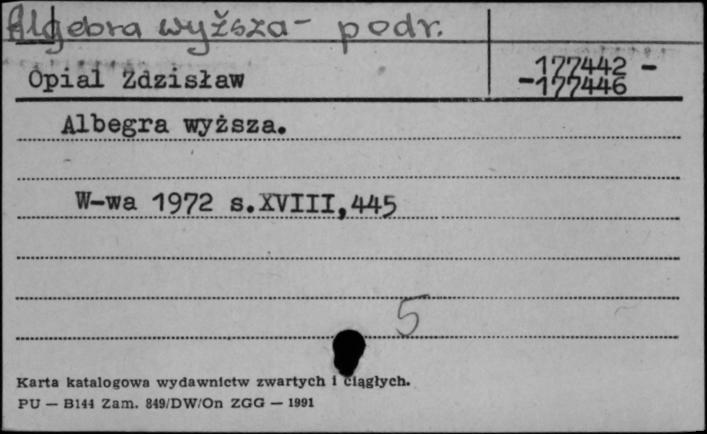 Algebra wyższa - podr.
Opial Zdzisław
177442 -
-177446
Albegra wyższa.
W-wa 1972 s.XVIII,445
5
Karta katalogowa wydawnictw zwartych i ciągłych.
PU — B144 Zam. 849/DW/On ZGG — 1991